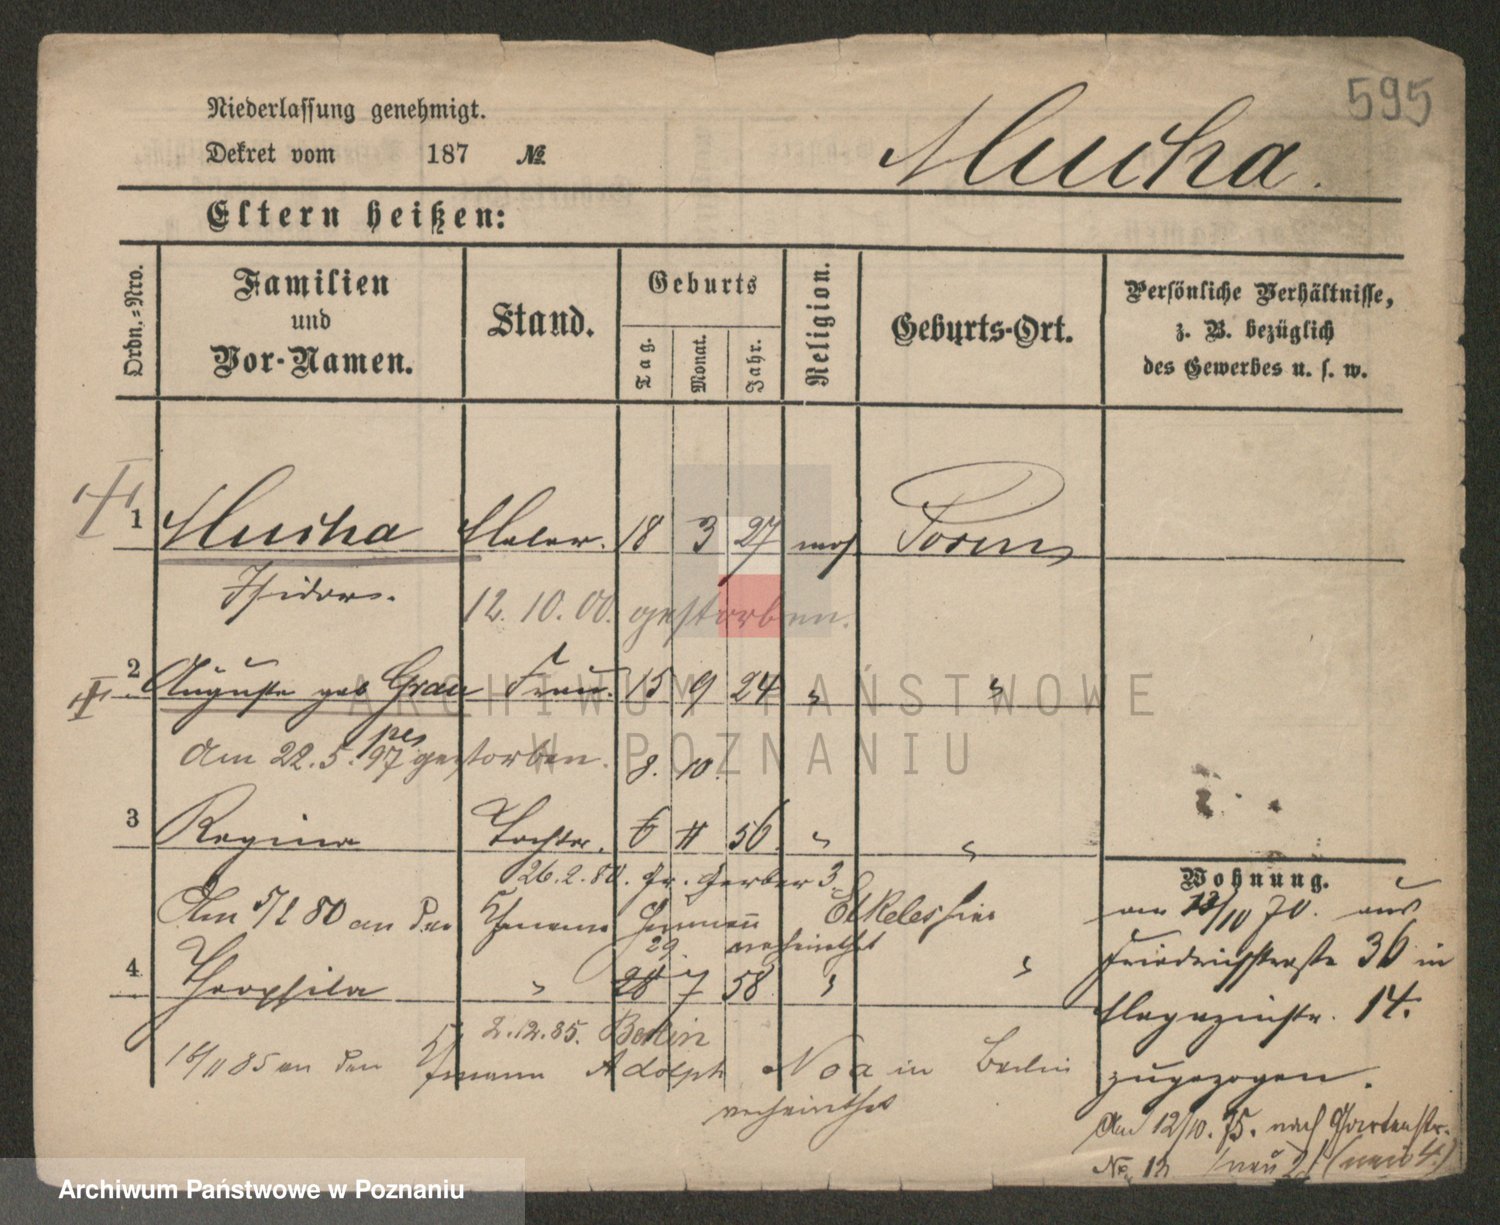 595
Niederlassung genehmigt.
Dekret vom 187 №
Mucha.
Eltern heißen:
Ordn.-Nro.
Familien und Vor-Namen.
Stand.
Geburts
Tag.
Monat.
Jahr.
Religion.
Geburts-Ort.
Persönliche Verhältnisse,
z. B. bezüglich
des Gewerbes u. s. w.
1 Mucha Maler. 18 3 27 mos Posen
Isidor.
12. 10. 00. gestorben.
2 Auguste geb Grau Frau. 15 9 24 " "
Am 22. 5. 97 gestorben. 8. 10.
3 Regina Tochter. 6 11 56 " "
26. 2. 80.
Am 5/2 80 an den Kfmann
29. verheirathet
4 Theophila " 28 7 58 " "
2. 12. 85. Berlin
18/11 85 an den Kfmann Adolph Noa in Berlin
verheirathet
Wohnung.
am 12/10 70. aus
Friedrichstraße 36 in
Magazinstr. 14.
zugezogen.
Am 12/10. 75. nach Gartenstr.
No 13 (neu 4.)
ARCHIWUM PAŃSTWOWE
W POZNANIU
Archiwum Państwowe w Poznaniu